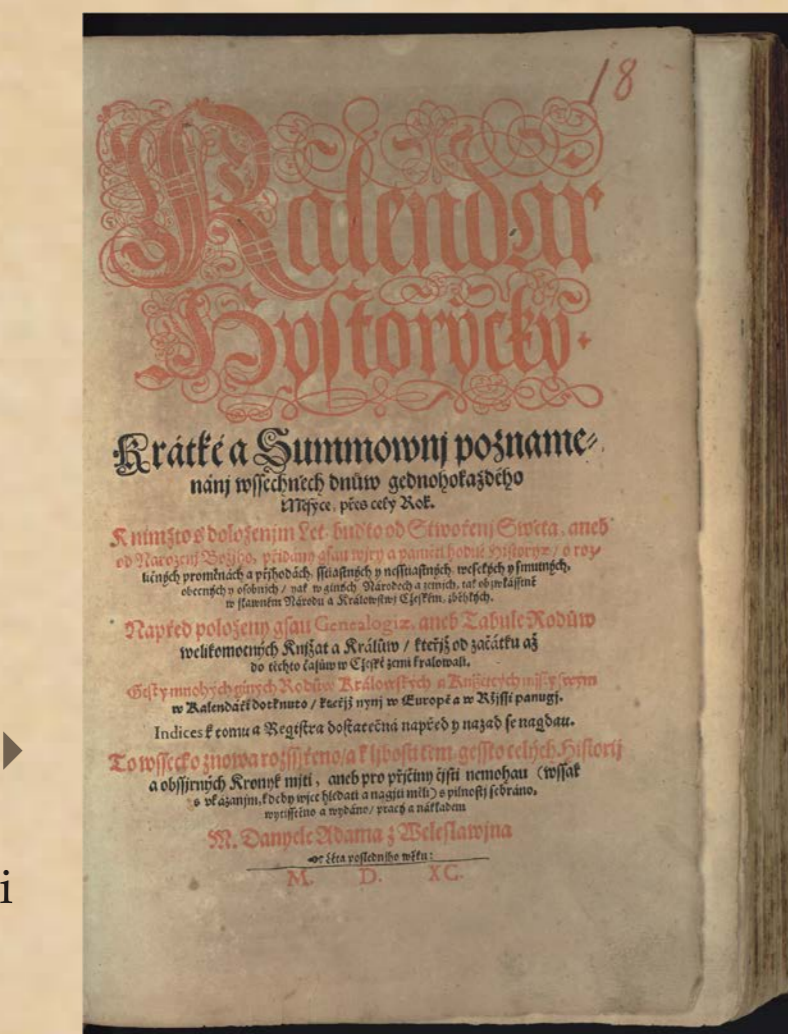 18
Kalendář
Hystorycký.
Krátké a Summownj pozname⸗
nánj wssechněch dnůw gednohokaždého
Měsýce, přes celý Rok.
K nimžto s doloženjm Let, buďto od Stwořenj Swěta, aneb
od Narozenj Božjho, přidány gsau wjry a paměti hodné Historyæ / o roz⸗
ličných proměnách a přjhodách, sstiastných y nesstiastných, weselých y smutných,
obecných y osobnjch / yak w giných Národech a zemjch, tak obzwlásstně
w slawném Národu a Králowstwj Cžeském, zběhlých.
Napřed položeny gsau Genealogiæ, aneb Tabule Rodůw
welikomocných Knjžat a Králůw / kteřjž od začátku až
do těchto časůw w Cžeské zemi kralowali.
Gest y mnohých giných Rodůw Králowských a Knjžetcých mjsty swým
w Kalendáři dotknuto / kteřjž nynj w Europě a w Ržjssi panugj.
Indices k tomu a Registra dostatečná napřed y nazad se nagdau.
To wssecko znowa rozssjřeno / a k ljbosti těm, gessto celých Historij
a obssjrných Kronyk mjti, aneb pro přjčiny čjsti nemohau (wssak
s vkázanjm, kdeby wjce hledati a nagjti měli) s pilnostj sebráno,
wytisstěno a wydáno / pracý a nákladem
M. Danyele Adama z Weleslawjna
Léta posledního wěku:
M. D. XC.
i